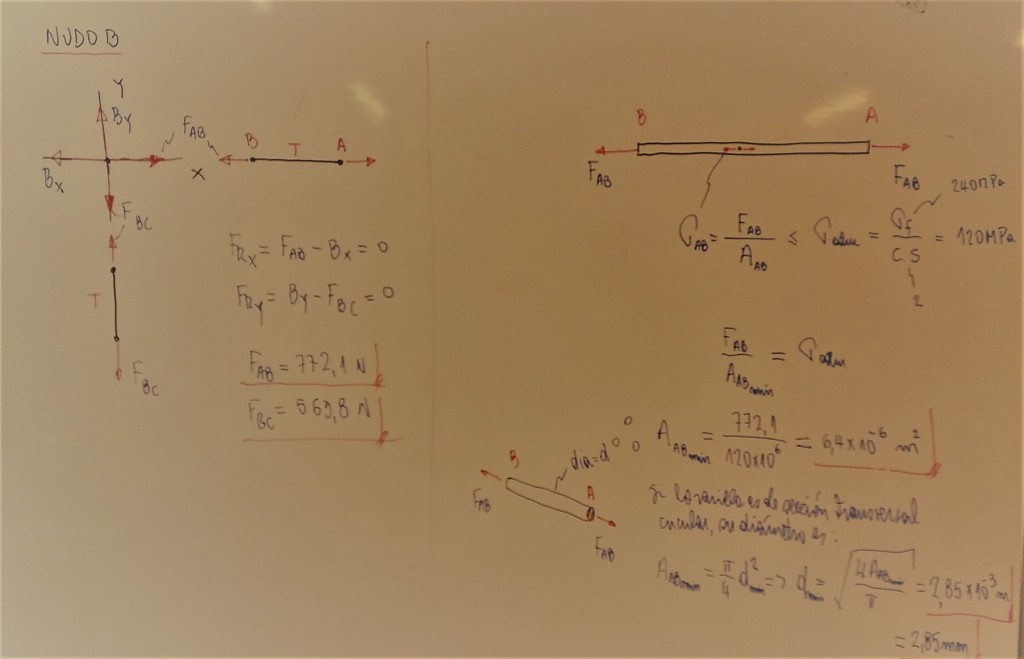 NUDO B
Y
By
F_AB
B T A
Bx
X
F_BC
T
F_BC
F_Rx = F_AB - Bx = 0
F_Ry = By - F_BC = 0
F_AB = 772,1 N
F_BC = 569,8 N
B A
F_AB F_AB
240MPa
σ_AB = F_AB / A_AB ≤ σ_adm = σ_f / C.S = 120MPa
2
F_AB / A_ABmin = σ_adm
A_ABmin = 772,1 / 120x10^6 = 6,4x10^-6 m^2
B dia=d
A
F_AB
F_AB
Si la varilla es de sección transversal
circular, su diámetro es:
A_ABmin = π/4 d²min => dmin = √(4A_ABmin / π) = 2,85x10^-3 m
= 2,85mm